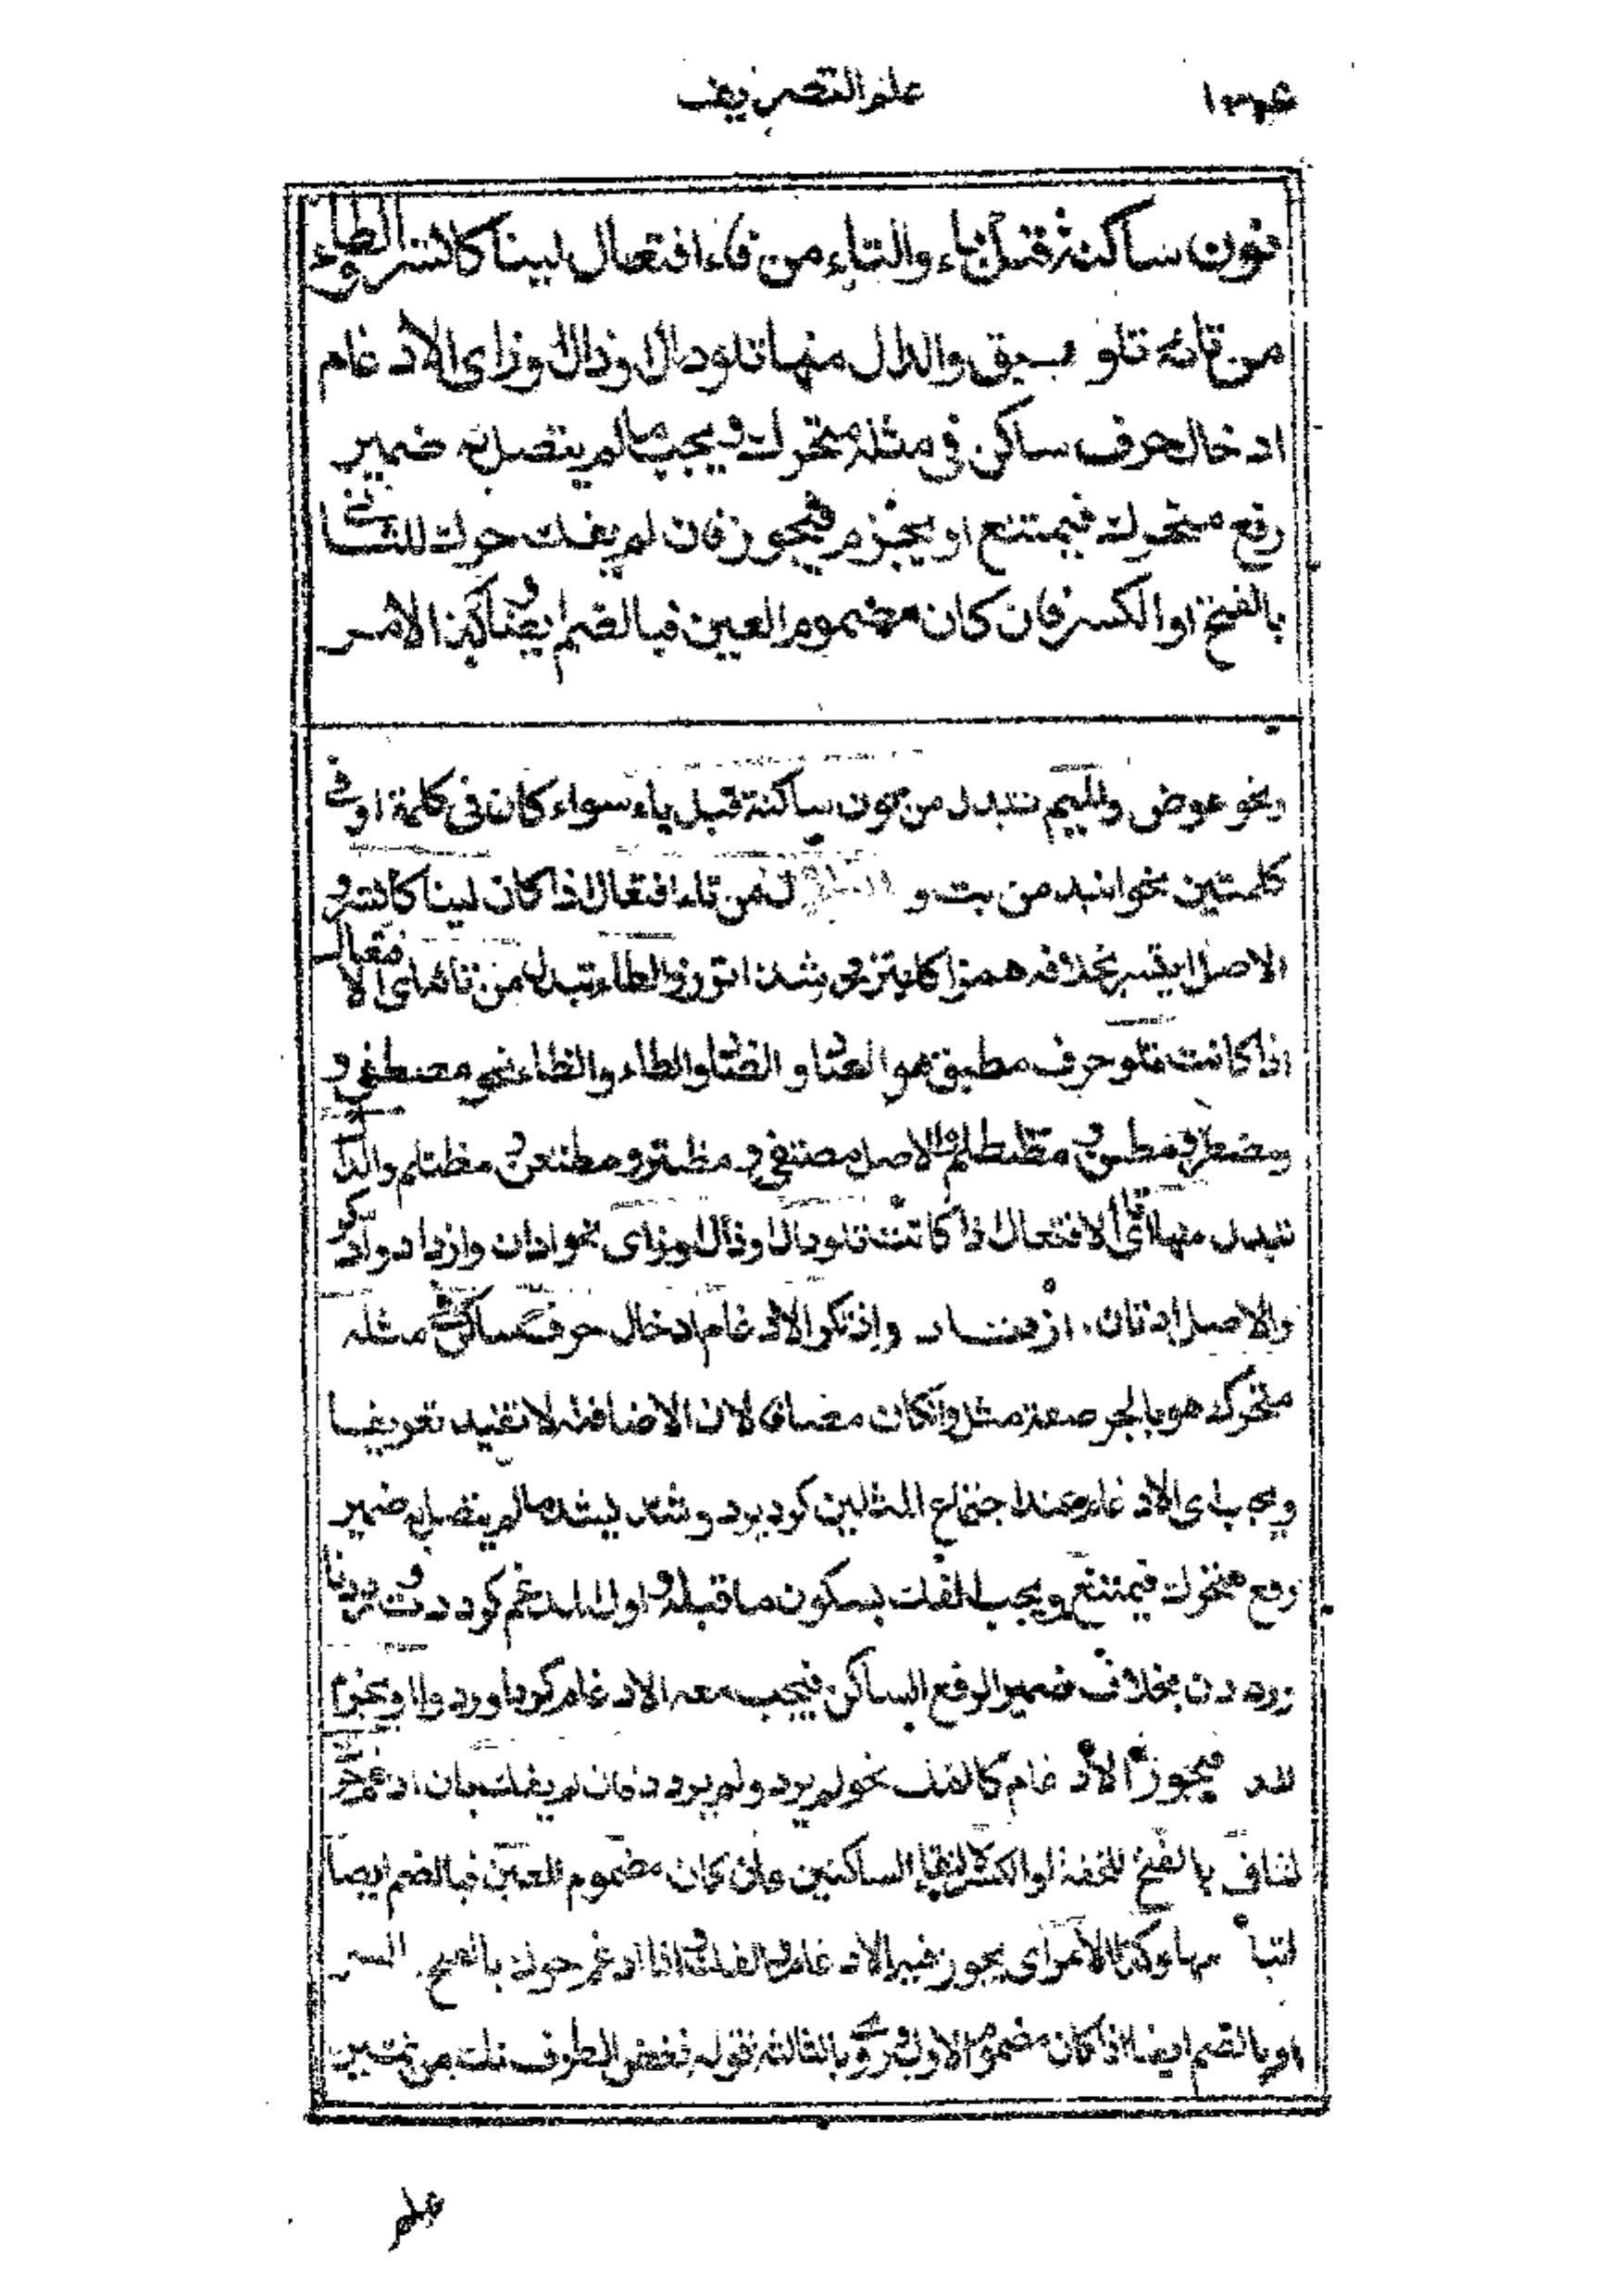 علم التصريف
نون ساكنة قبل باء والتاء من فاء افتعال لينا كاتسر والطاء
من تائه تلو مطبق والدال منها تلو دال او ذال او زاى الادغام
ادخال حرف ساكن فى مثله متحرك ويجب ما لم يتصل به ضمير
رفع متحرك فيمتنع او يجزم فيجوز فان لم يفك حرك الثانى
بالفتح او الكسر فان كان مضموم العين فبالضم ايضا وكذا الامر
ونحو عوض والميم تبدل من نون ساكنة قبل باء سواء كان فى كلمة او فى
كلمتين نحو انبذ من بت و من تاء افتعال اذا كان لينا كاتسر و
الاصل ايتسر بخلافه همزا كايتزر وشذ اتزر والطاء تبدل من تائه اى الافتعال
اذا كانت تلو حرف مطبق هو الصاد والضاد والطاء والظاء نحو مصطفى و
ومضطر ومطعن ومظطلم والاصل مصتفى و مظتلم والدال
تبدل منها اى تاء الافتعال اذا كانت تلو دال او ذال او زاى نحو ادان وازداد واذكر
والاصل ادتان، ازتاد واذتكر الادغام ادخال حرف ساكن فى مثله
متحرك هو بالجر صفة مثل وان كان مضافا لان الاضافة لا تفيد تعريفا
ويجب اى الادغام عند اجتماع المثلين كرد يرد وشد يشد ما لم يتصل به ضمير
رفع متحرك فيمتنع ويجب الفك بسكون ما قبله واول المدغم كرددت ورددنا
رددن بخلاف ضمير الرفع الساكن فيجب معه الادغام كردا وردوا او يجزم
فيجوز الادغام كالفك نحو لم يرد ولم يردد فان لم يفك بان ادغم حرك
الثانى بالفتح للخفة او الكسر لالتقاء الساكنين وان كان مضموم العين فبالضم ايضا
وكذا الامر اى يجوز فيه الادغام والفك واذا ادغم حرك بالفتح
او بالضم ايضا اذا كان مضموم الاول بالثلاثة قوله فغض الطرف انك من نمير
علم